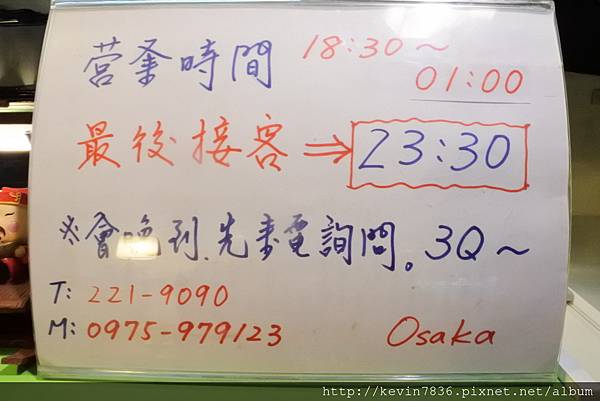 営業時間 18:30~
01:00
最後接客⇒23:30
※會晚到.先來電詢問。3Q~
T: 221-9090
M: 0975-979123 Osaka
http://kevin7836.pixnet.net/album